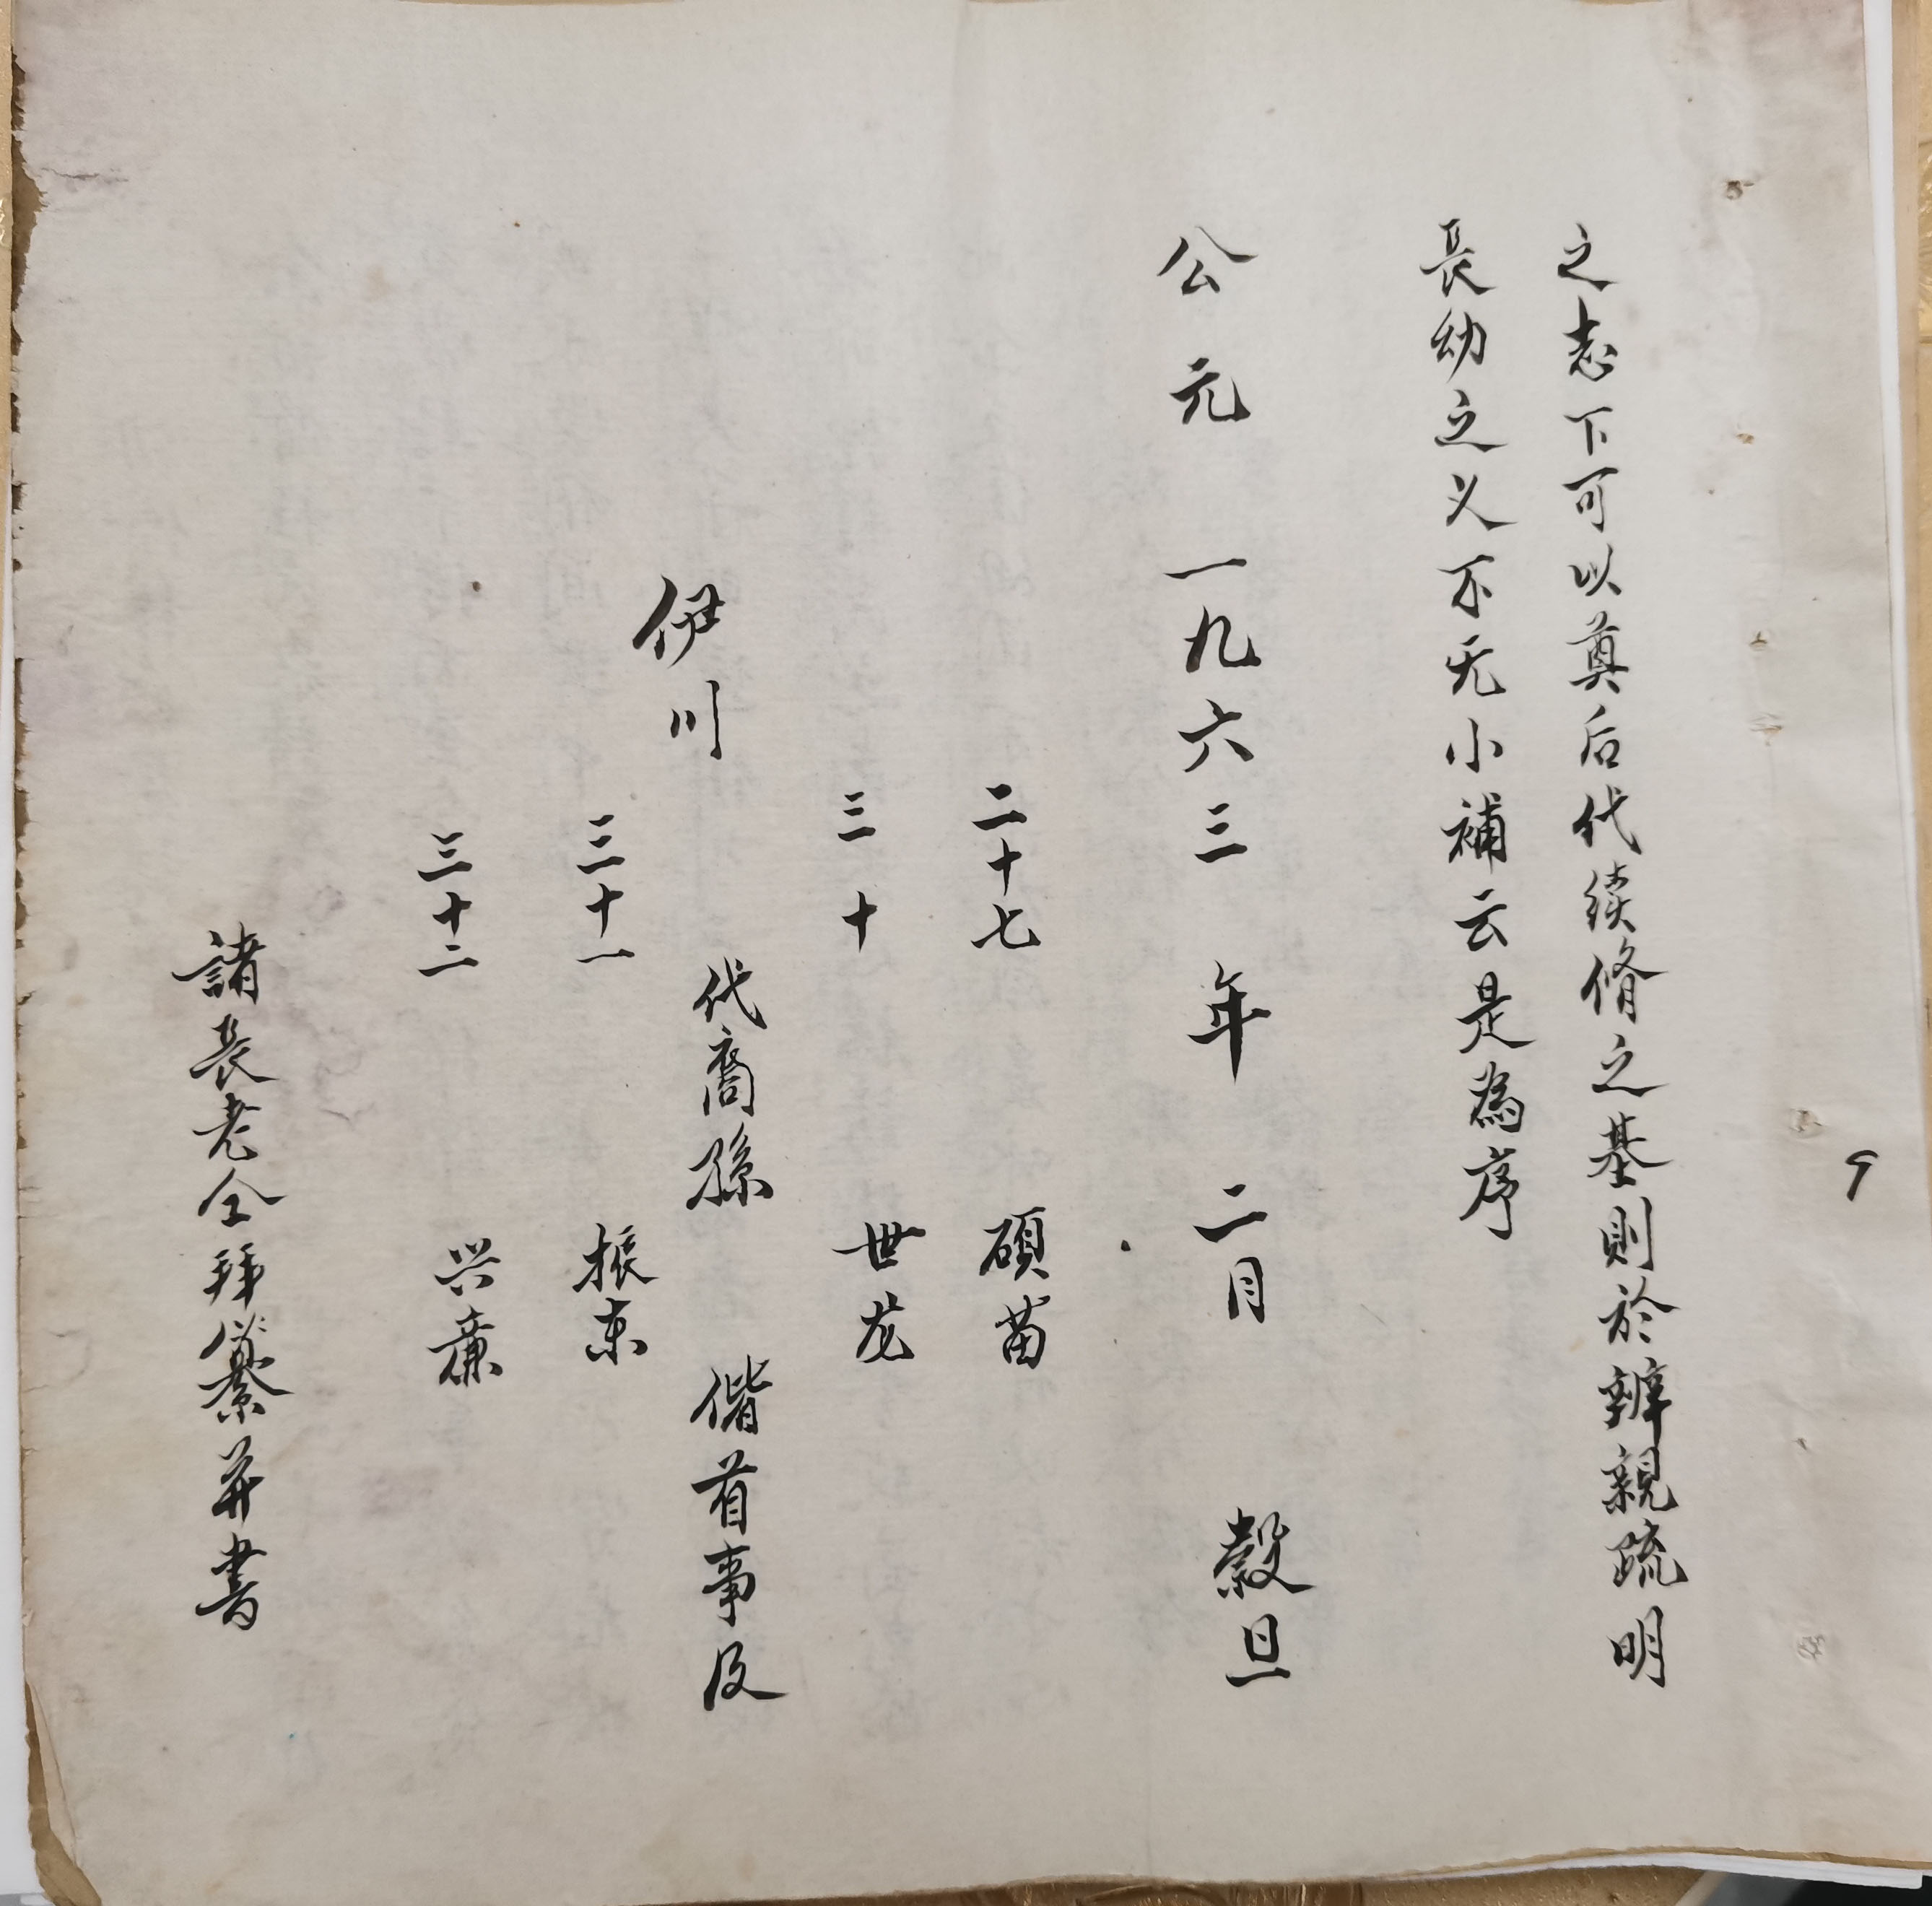 之志下可以奠后代续脩之基則於辨親疏明
長幼之义不无小補云是為序
公元一九六三年二月 穀旦
二十七 碩苗
三十 世茂
伊川 代裔孫 偕首事及
三十一 振东
三十二 兴廉
諸長老仝拜纂并書
9